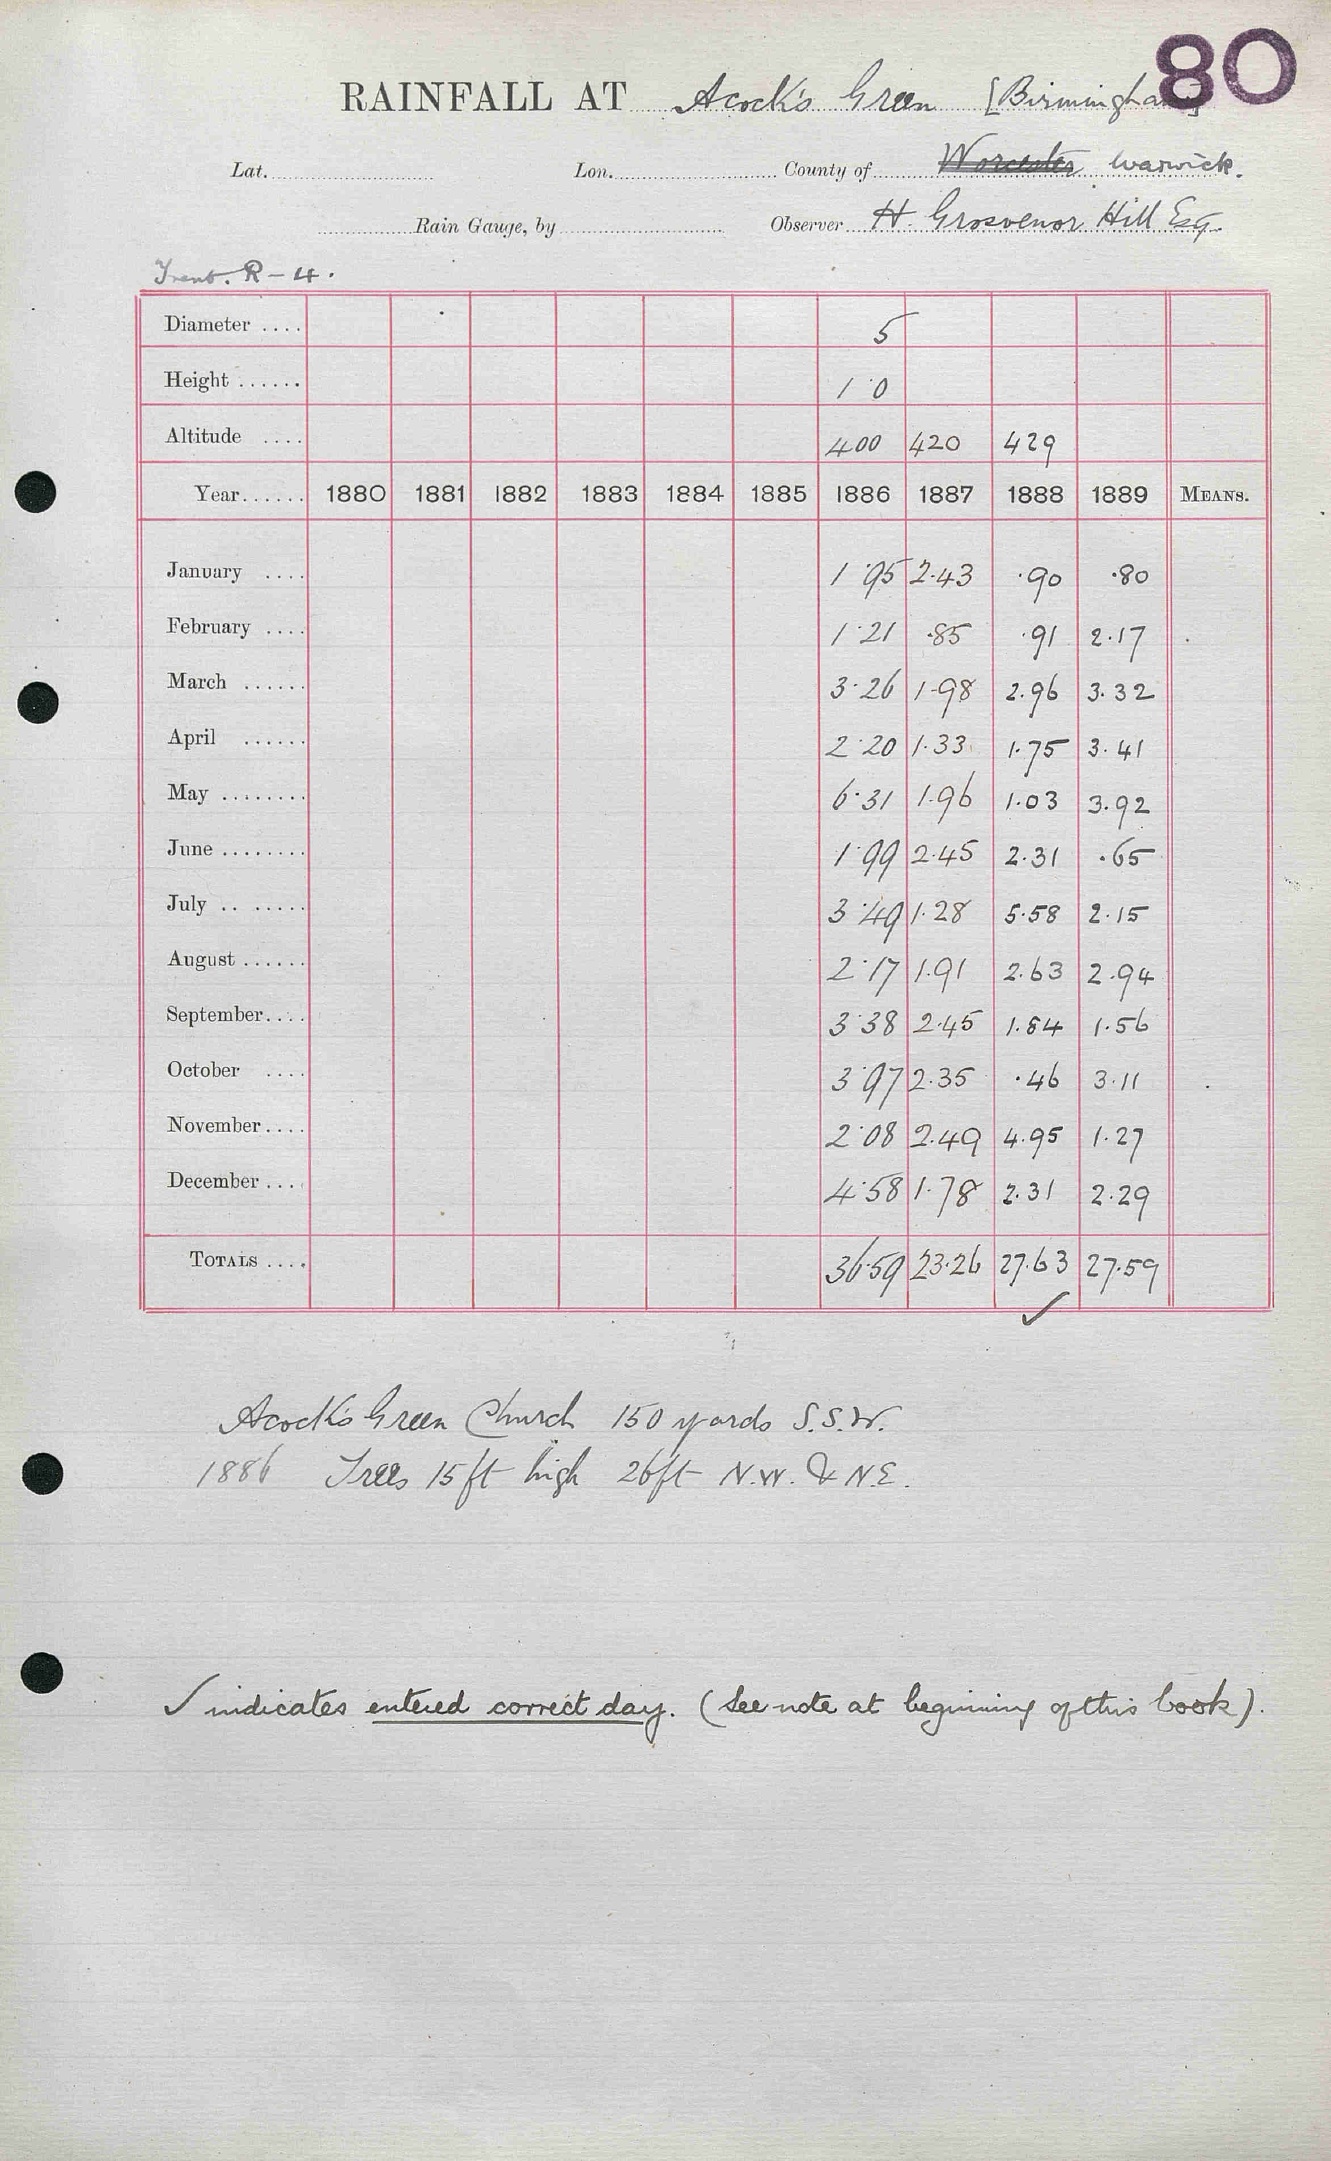 80
RAINFALL AT Acock's Green [Birmingham]
Lat. Lon. County of Worcester Warwick.
Rain Gauge, by Observer H. Grosvenor Hill Esq.
Trent. R - 4.
Diameter .... 5
Height ...... 1·0
Altitude .... 400 420 429
Year...... 1880 1881 1882 1883 1884 1885 1886 1887 1888 1889 MEANS.
January .... 1·95 2·43 ·90 ·80
February .... 1·21 ·85 ·91 2·17
March ...... 3·26 1·98 2·96 3·32
April ...... 2·20 1·33 1·75 3·41
May ........ 6·31 1·96 1·03 3·92
June ........ 1·99 2·45 2·31 ·65
July .. ..... 3·49 1·28 5·58 2·15
August ...... 2·17 1·91 2·63 2·94
September.... 3·38 2·45 1·84 1·56
October .... 3·97 2·35 ·46 3·11
November.... 2·08 2·49 4·95 1·27
December .... 4·58 1·78 2·31 2·29
TOTALS .... 36·59 23·26 27·63 27·59
✓
Acock's Green Church 150 yards S.S.W.
1886 Trees 15 ft high 26 ft N.W. & N.E.
✓ indicates entered correct day. (See note at beginning of this book).